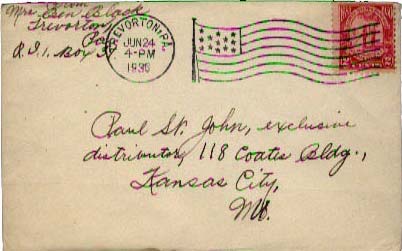 From
Mrs. Ben Black
Trevorton,
Pa.
R.D.1. Box 3
TREVORTON, PA.
JUN 24
4-PM
1930
Paul St. John, exclusive
distributor, 118 Coates Bldg.,
Kansas City,
Mo.